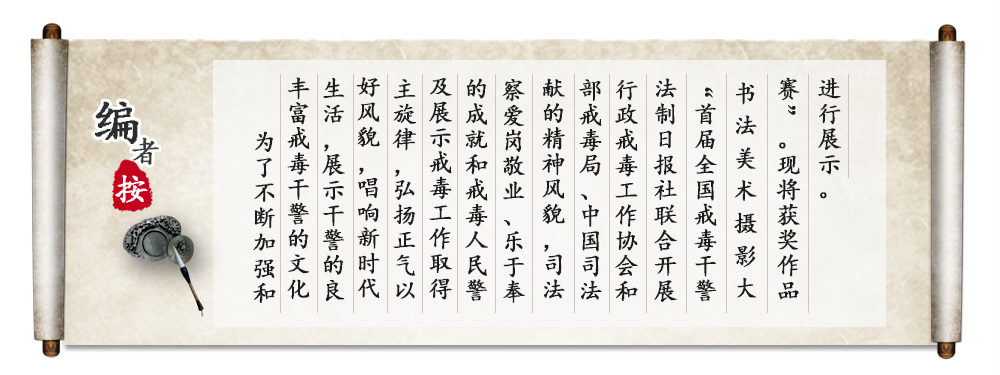 编者按
为了不断加强和
丰富戒毒干警的文化
生活,展示干警的良
好风貌,唱响新时代
主旋律,弘扬正气以
及展示戒毒工作取得
的成就和戒毒人民警
察爱岗敬业、乐于奉
献的精神风貌,司法
部戒毒局、中国司法
行政戒毒工作协会和
法制日报社联合开展
“首届全国戒毒干警
书法美术摄影大
赛”。现将获奖作品
进行展示。